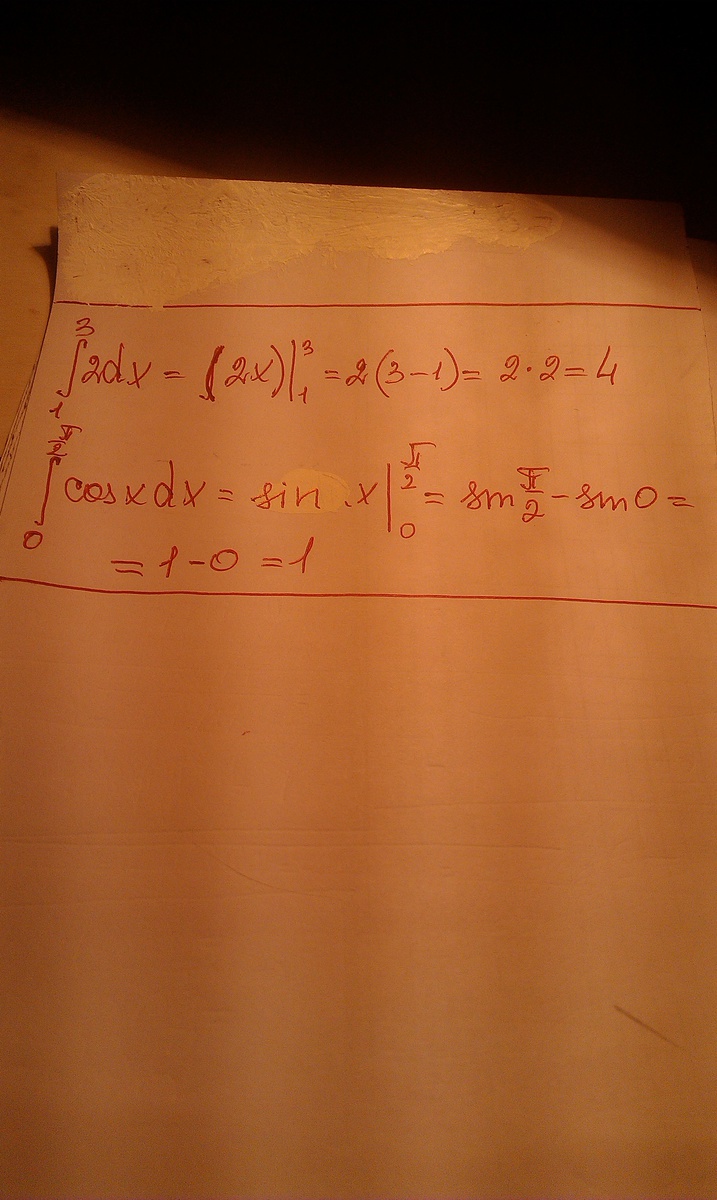 ∫₁³ 2dx = (2x)|₁³ = 2(3-1) = 2·2 = 4
∫₀^(π/2) cosxdx = sin x|₀^(π/2) = sin π/2 - sin0 =
= 1-0 = 1